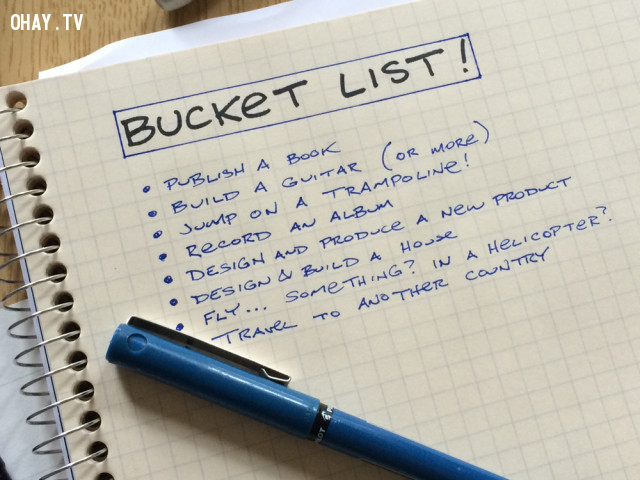 OHAY.TV
BUCKET LIST!
• PUBLISH A BOOK
• BUILD A GUITAR (OR MORE)
• JUMP ON A TRAMPOLINE!
• RECORD AN ALBUM
• DESIGN AND PRODUCE A NEW PRODUCT
• DESIGN & BUILD A HOUSE
• FLY... SOMETHING? IN A HELICOPTER?
• TRAVEL TO ANOTHER COUNTRY
OHAY.TV